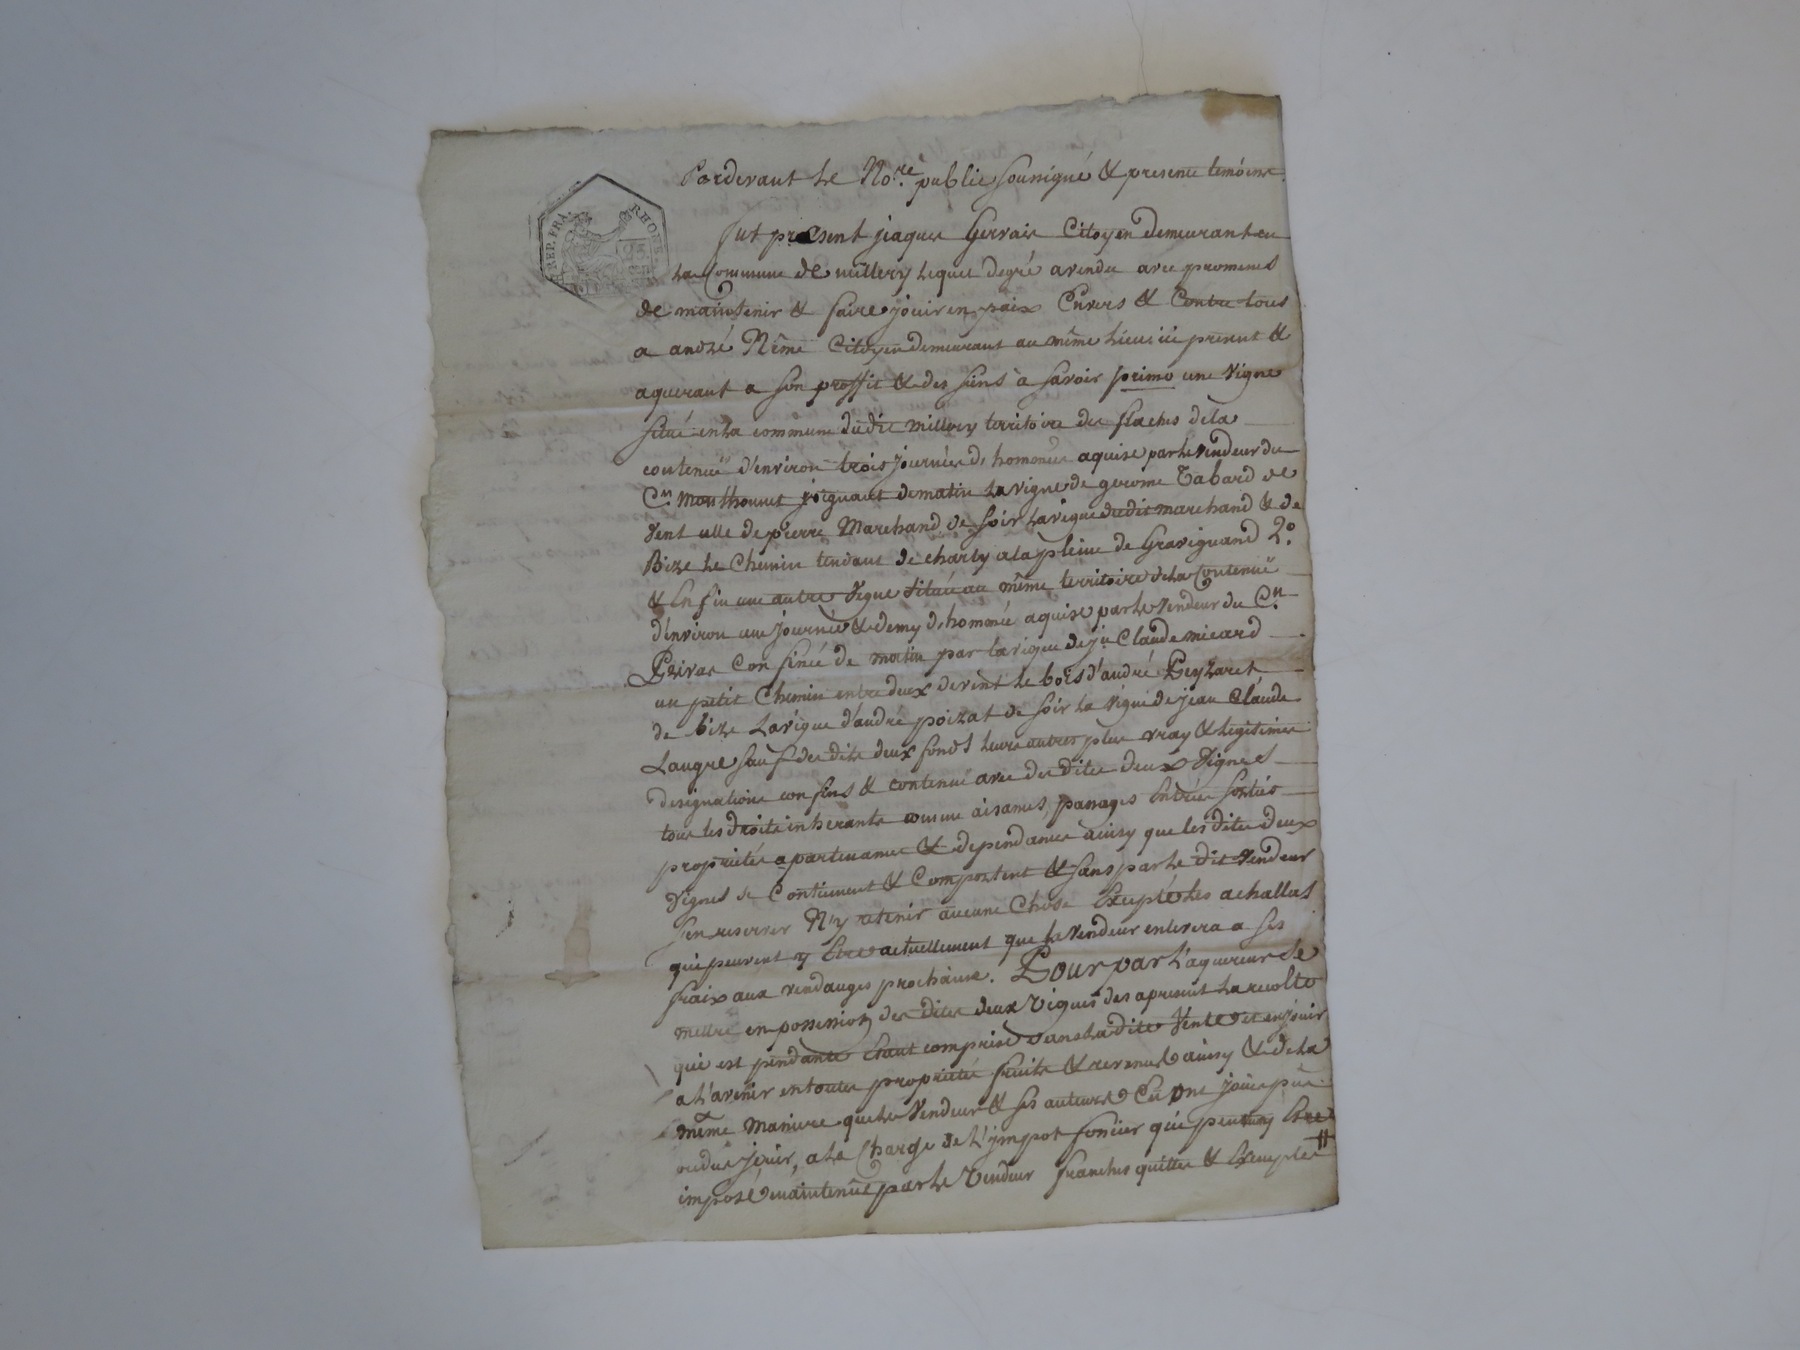 REP. FRA. RHONE.
Pardevant le No.re public soussigné & presents temoins
fut present jiaques Gervais Citoyen demeurant en
la Commune de millery lequel degré a vendu avec promesses
de maintenir & faire jouir en paix Envers & Contre tous
a andré Nême Citoyen demeurant au même lieu ici present &
aquerant a son proffit & des siens à savoir primo une vigne
situé en la commune dudit millery territoire des flaches de la
contenuë d'environ trois journées d'homme aquise par le vendeur du
C.n Monthonnet joignant de matin la vigne de gerome Tabard de
vent celle de pierre Marchand de soir la vigne dudit marchand & de
Bize le Chemin tendant de charly a la pleine de Gravignand 2.°
& Enfin une autre vigne située au même territoire de la Contenuë
d'environ une journée & demy d'homme aquise par le vendeur du C.n
Privas Confinée de matin par la vigne de jn Claude micard
un petit Chemin entre deux de vent le bois d'andré Peyzaret
de bize la vigne d'andré poizat de soir la vigne de jean Claude
Laugre sauf des dits deux fonds leurs autres plus vray & legitimes
designations confins & contenue avec des dites deux vignes
tous les droits inherants comme aisances, passages Entrées sorties
proprietés apartenances & dependances ainsy que les dites deux
vignes se Contiennent & Comportent & sans par le dit vendeur
s'en reserver N'y retenir aucune Chose Exepté les achallas
qui peuvent y Etre actuellement que le vendeur enlevera a ses
fraix aux vendanges prochaines. Pour par l'aquereur se
mettre en possession des dites deux vignes des apresent la recolte
qui est pendante Etant comprise dans la dite Vente et en jouir
a l'avenir en toutes proprieté fruits & revenus ainsy & de la
même Maniere que le Vendeur & ses auteurs En ont jouis pû
ou du jouir, a la Charge de l'ympot foncier qui peuvent Etre
imposé maintenüe par le Vendeur franches quittes & Exemptes